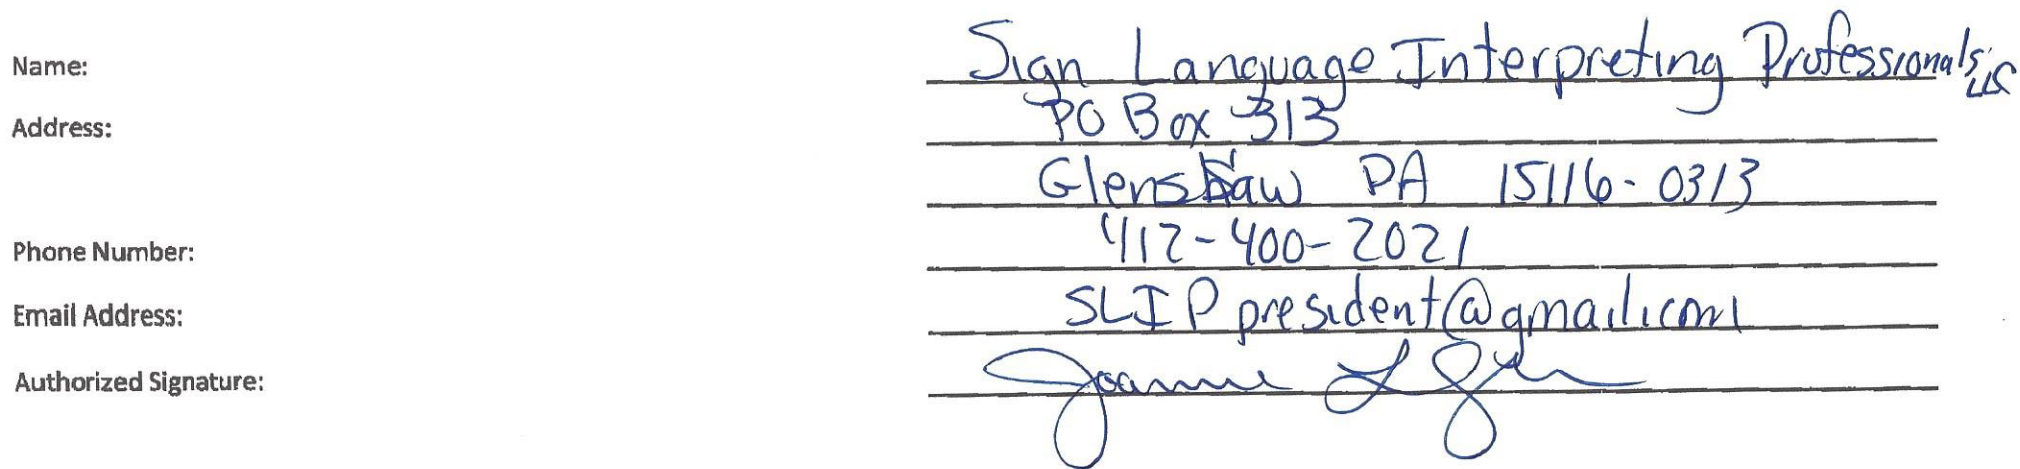 Name: Sign Language Interpreting Professionals, LLC
Address: PO Box 313
Glenshaw PA 15116-0313
Phone Number: 412-400-2021
Email Address: SLIPpresident@gmail.com
Authorized Signature: Joanne L